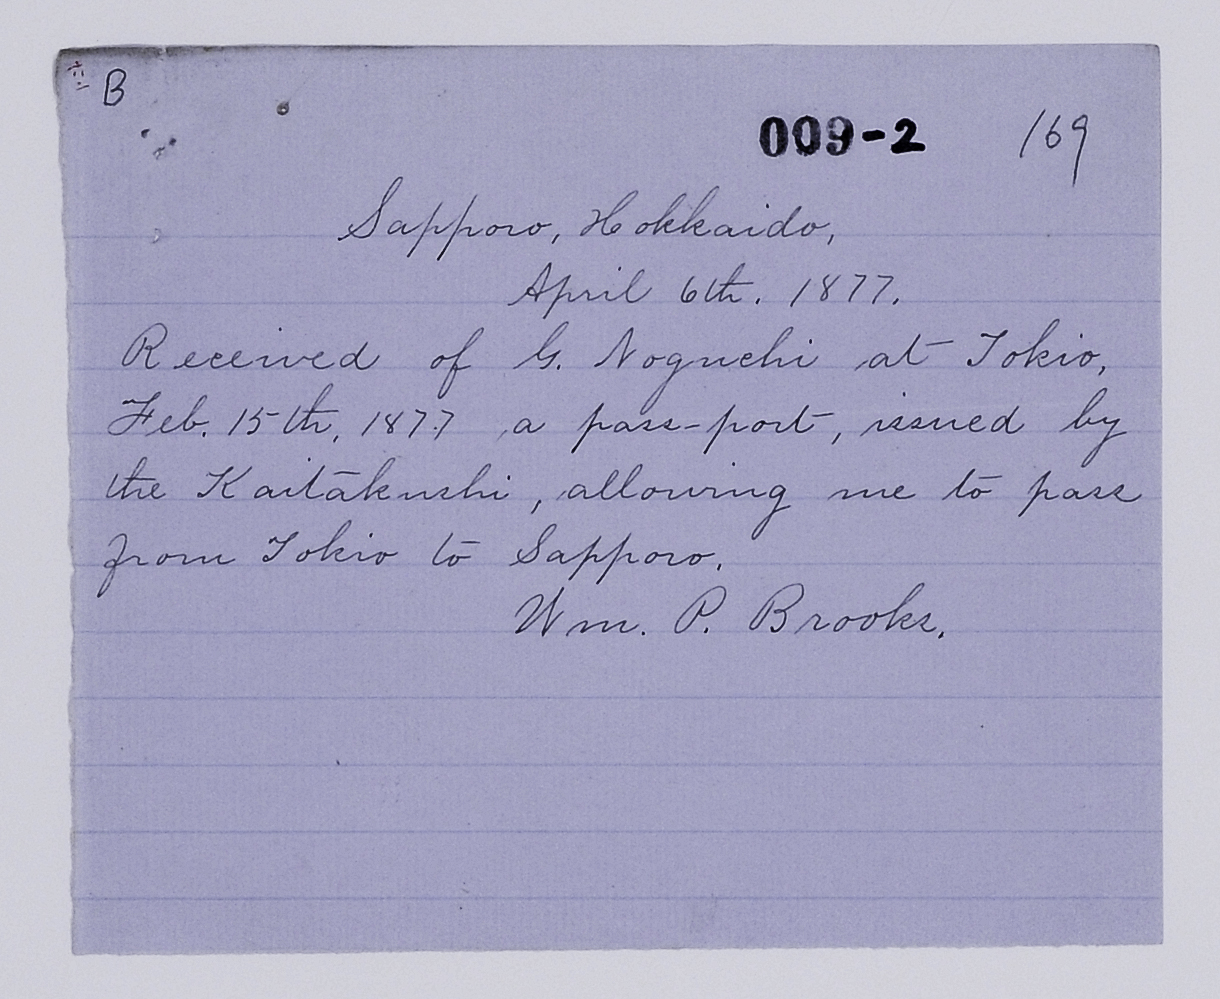 六二
B
009-2 169
Sapporo, Hokkaido,
April 6th. 1877.
Received of G. Noguchi at Tokio,
Feb. 15th, 1877 a pass-port, issued by
the Kaitakushi, allowing me to pass
from Tokio to Sapporo.
Wm. P. Brooks.